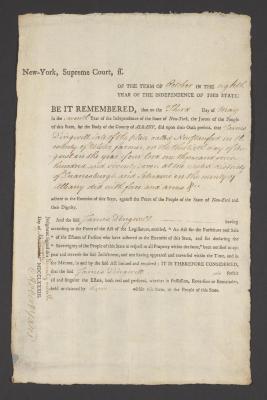 New-York, Supreme Court, ſſ.
OF THE TERM OF October IN THE eighth
YEAR OF THE INDEPENDENCE OF THIS STATE:
BE IT REMEMBERED, that on the Third Day of May
In the seventh Year of the Independence of the State of New-York, the Jurors of the People
of this State, for the Body of the County of ALBANY, did upon their Oath present, that James
Dingwell late of the place called in the
county of farmer, on the thirtieth day of
in the year of our Lord one thousand seven
hundred and seventy seven at the united districts
of Duanesburgh and Schoharie in the county of
Albany did with force and arms &c
adhere to the Enemies of this State, against the Peace of the People of the State of New-York and
their Dignity.
And the said James Dingwell having
according to the Form of the Act of the Legislature, entitled, "An Act for the Forfeiture and Sale
"of the Estates of Persons who have adhered to the Enemies of this State, and for declaring the
"Sovereignty of the People of this State in respect to all Property within the same," been notified to appear
and traverse the said Indictment, and not having appeared and traversed within the Time, and in
the Manner, in and by the said Act limited and required: IT IS THEREFORE CONSIDERED,
that the said James Dingwell do forfeit
all and singular the Estate, both real and personal, whether in Possession, Reversion or Remainder,
held or claimed by him within this State, to the People of this State.
Judgment signed
Day of MDCCLXXXIII.